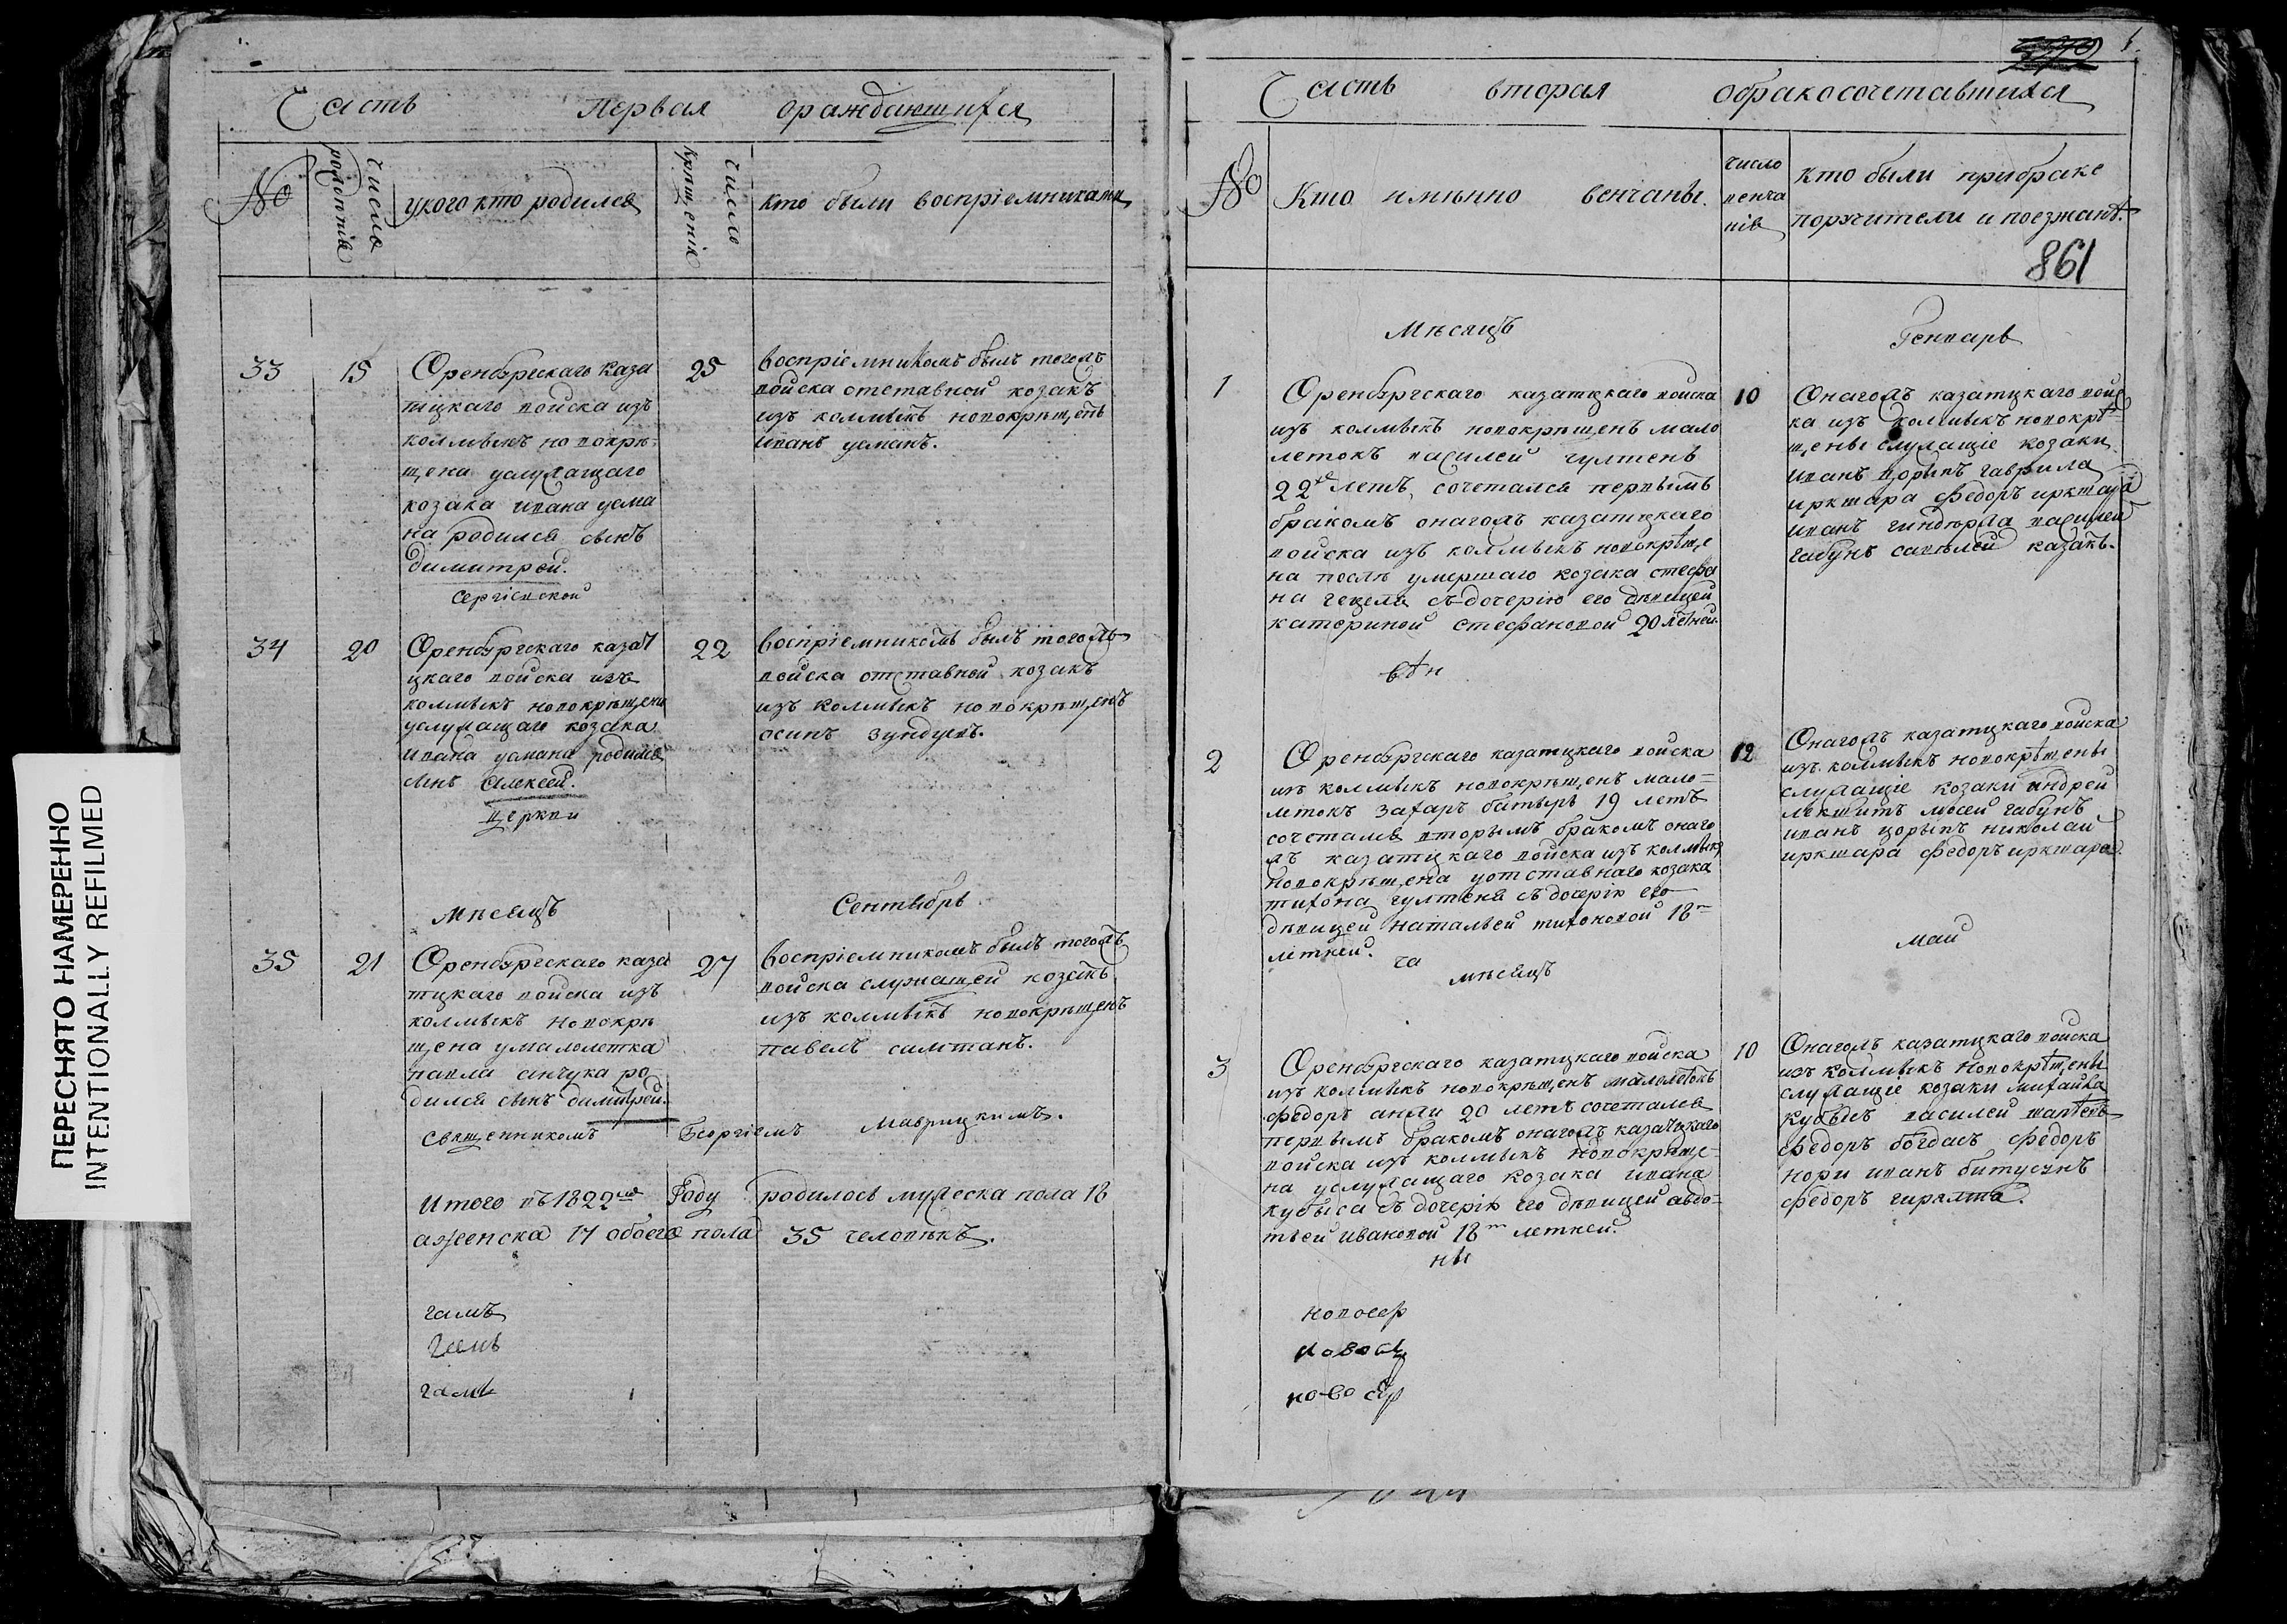 Часть Первая ораждающихся
№
число рожденнія
укого кто родился
число крещенія
кто были воспріемниками
33
15
Оренбургскаго каза
тцкаго войска изъ
колмыкъ новокрѣ
щена услужащаго
козака ивана усма
на родился сынъ
димитрей.
сергіевской
25
воспріемникомъ былъ тогожъ
войска отставной козакъ
изъ колмыкъ новокрѣщенъ
иванъ усманъ.
34
20
Оренбургскаго казат
цкаго войска изъ
колмыкъ новокрѣщена
услужащаго козака
ивана усмана родился
сынъ алексей.
церкви
22
воспріемникомъ былъ тогожъ
войска отставной козакъ
изъ колмыкъ новокрѣщенъ
осипъ зундуевъ.
Мѣсяцъ
Сентябрь
35
21
Оренбургскаго каза
тцкаго войска изъ
колмыкъ новокрѣ
щена умалолетка
павла анчука ро
дился сынъ димитрей.
27
воспріемникомъ былъ тогожъ
войска служащей козакъ
изъ колмыкъ новокрѣщенъ
павелъ салтанъ.
Священникомъ Георгіемъ Маврицкимъ.
Итого въ 1822мъ Году родилось мужеска пола 18
аженска 17 обоего пола 35 человѣкъ.
гамъ
гамъ
1
Часть вторая обракосочетавшихся
№
Кто имянно венчаны.
число
венча
нія
кто были прибраке
поручители и поезжанѣ.
861
Мѣсяцъ
Генварь
1
Оренбургскаго казатцкаго войска
изъ колмыкъ новокрѣщенъ мало
летокъ василей гултенъ
22хъ летъ, сочетался первымъ
бракомъ онагожъ казатцкаго
войска изъ колмыкъ новокрѣще
на послѣ умершаго козака стефа
на гецеля съ дочерію его дѣвицей
катериной стефановой 20 лѣтней.
10
Онагожъ казатцкаго войс
ка изъ колмыкъ новокрѣ
щены служащіе козаки
иванъ цорыпъ гаврила
иркшара федоръ иркшара
иванъ гиндюрла василей
габунъ савелей казакъ.
2
Оренбургскаго казатцкаго войска
изъ колмыкъ новокрѣщенъ мало-
летокъ захаръ батырь 19 летъ
сочетался вторымъ бракомъ онаго
жъ казатцкаго войска изъ колмыкъ
новокрѣщена уотставнаго козака
тихона гултеня съ дочерію его
дѣвицей натальей тихоновой 18
летней.
12
Онагожъ казатцкаго войска
изъ колмыкъ новокрѣщены
служащіе козаки андрей
лекшитъ мосей габунъ
иванъ цорыпъ николай
иркшара федоръ иркшара.
май
га
мѣсяцъ
3
Оренбургскаго казатцкаго войска
изъ колмыкъ новокрѣщенъ малолетокъ
федоръ анли 20 летъ сочетался
первымъ бракомъ онагожъ казатцкаго
войска изъ колмыкъ новокрѣще-
на услужащаго козака ивана
кубыса съ дочерію его дѣвицей авдо-
тьей ивановой 18ти летней.
ны
10
Онагожъ казатцкаго войска
изъ колмыкъ новокрѣщены
служащіе козаки михайла
кубысъ василей шаптенъ
федоръ богдасъ федоръ
нори иванъ битусунъ
федоръ гирялта.
новосер
ново
ново сер
ПЕРЕСНЯТО НАМЕРЕННО
INTENTIONALLY REFILMED